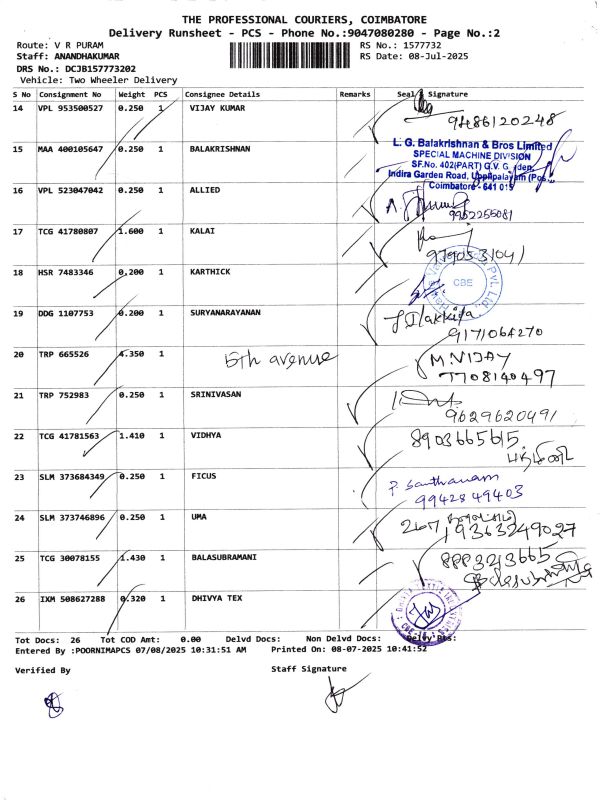 THE PROFESSIONAL COURIERS, COIMBATORE
Delivery Runsheet - PCS - Phone No.:9047080280 - Page No.:2
Route: V R PURAM RS No.: 1577732
Staff: ANANDHAKUMAR RS Date: 08-Jul-2025
DRS No.: DCJB157773202
Vehicle: Two Wheeler Delivery
S No Consignment No Weight PCS Consignee Details Remarks Seal Signature
14 VPL 953500527 0.250 1 VIJAY KUMAR
9486120248
15 MAA 400105647 0.250 1 BALAKRISHNAN
L. G. Balakrishnan & Bros Limited
SPECIAL MACHINE DIVISION
SF.No. 402(PART) G.V. G.
Indira Garden Road, Uppilipalayam (Pos
Coimbatore - 641 015
16 VPL 523047042 0.250 1 ALLIED
9952255081
17 TCG 41780807 1.600 1 KALAI
9790531041
18 HSR 7483346 0.200 1 KARTHICK
CBE
19 DDG 1107753 0.200 1 SURYANARAYANAN
9171064270
20 TRP 665526 4.350 1 5th avenue M.VIJAY
7708140497
21 TRP 752983 0.250 1 SRINIVASAN
9629620491
22 TCG 41781563 1.410 1 VIDHYA 8903665615
23 SLM 373684349 0.250 1 FICUS P. Santhanam
9942849403
24 SLM 373746896 0.250 1 UMA 267
9363249027
25 TCG 30078155 1.430 1 BALASUBRAMANI 8883213665
26 IXM 508627288 0.320 1 DHIVYA TEX
Tot Docs: 26 Tot COD Amt: 0.00 Delvd Docs: Non Delvd Docs: Delvy Pts:
Entered By :POORNIMAPCS 07/08/2025 10:31:51 AM Printed On: 08-07-2025 10:41:52
Verified By Staff Signature